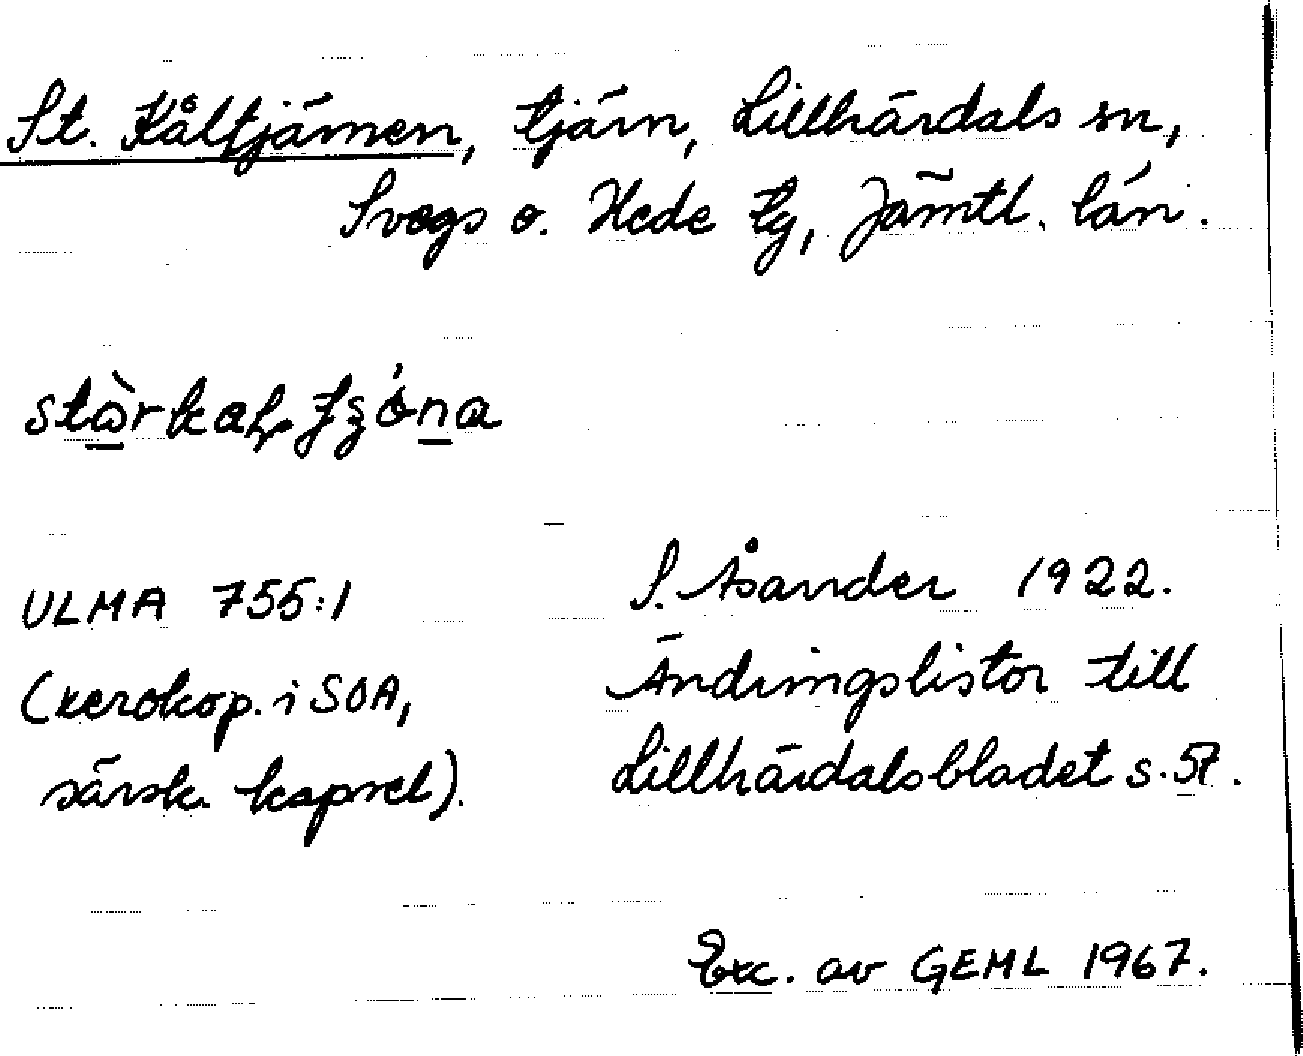 St. Kåltjärnen, tjärn, Lillhärdals sn,
Svegs o. Hede tg, Jämtl. län.
ULMA 755:1
S. Åsander 1922.
(xerokop. i SOA,
Ändringslistor till
särsk. kapsel).
Lillhärdalsbladet s. 57.
Exc. av GEML 1967.